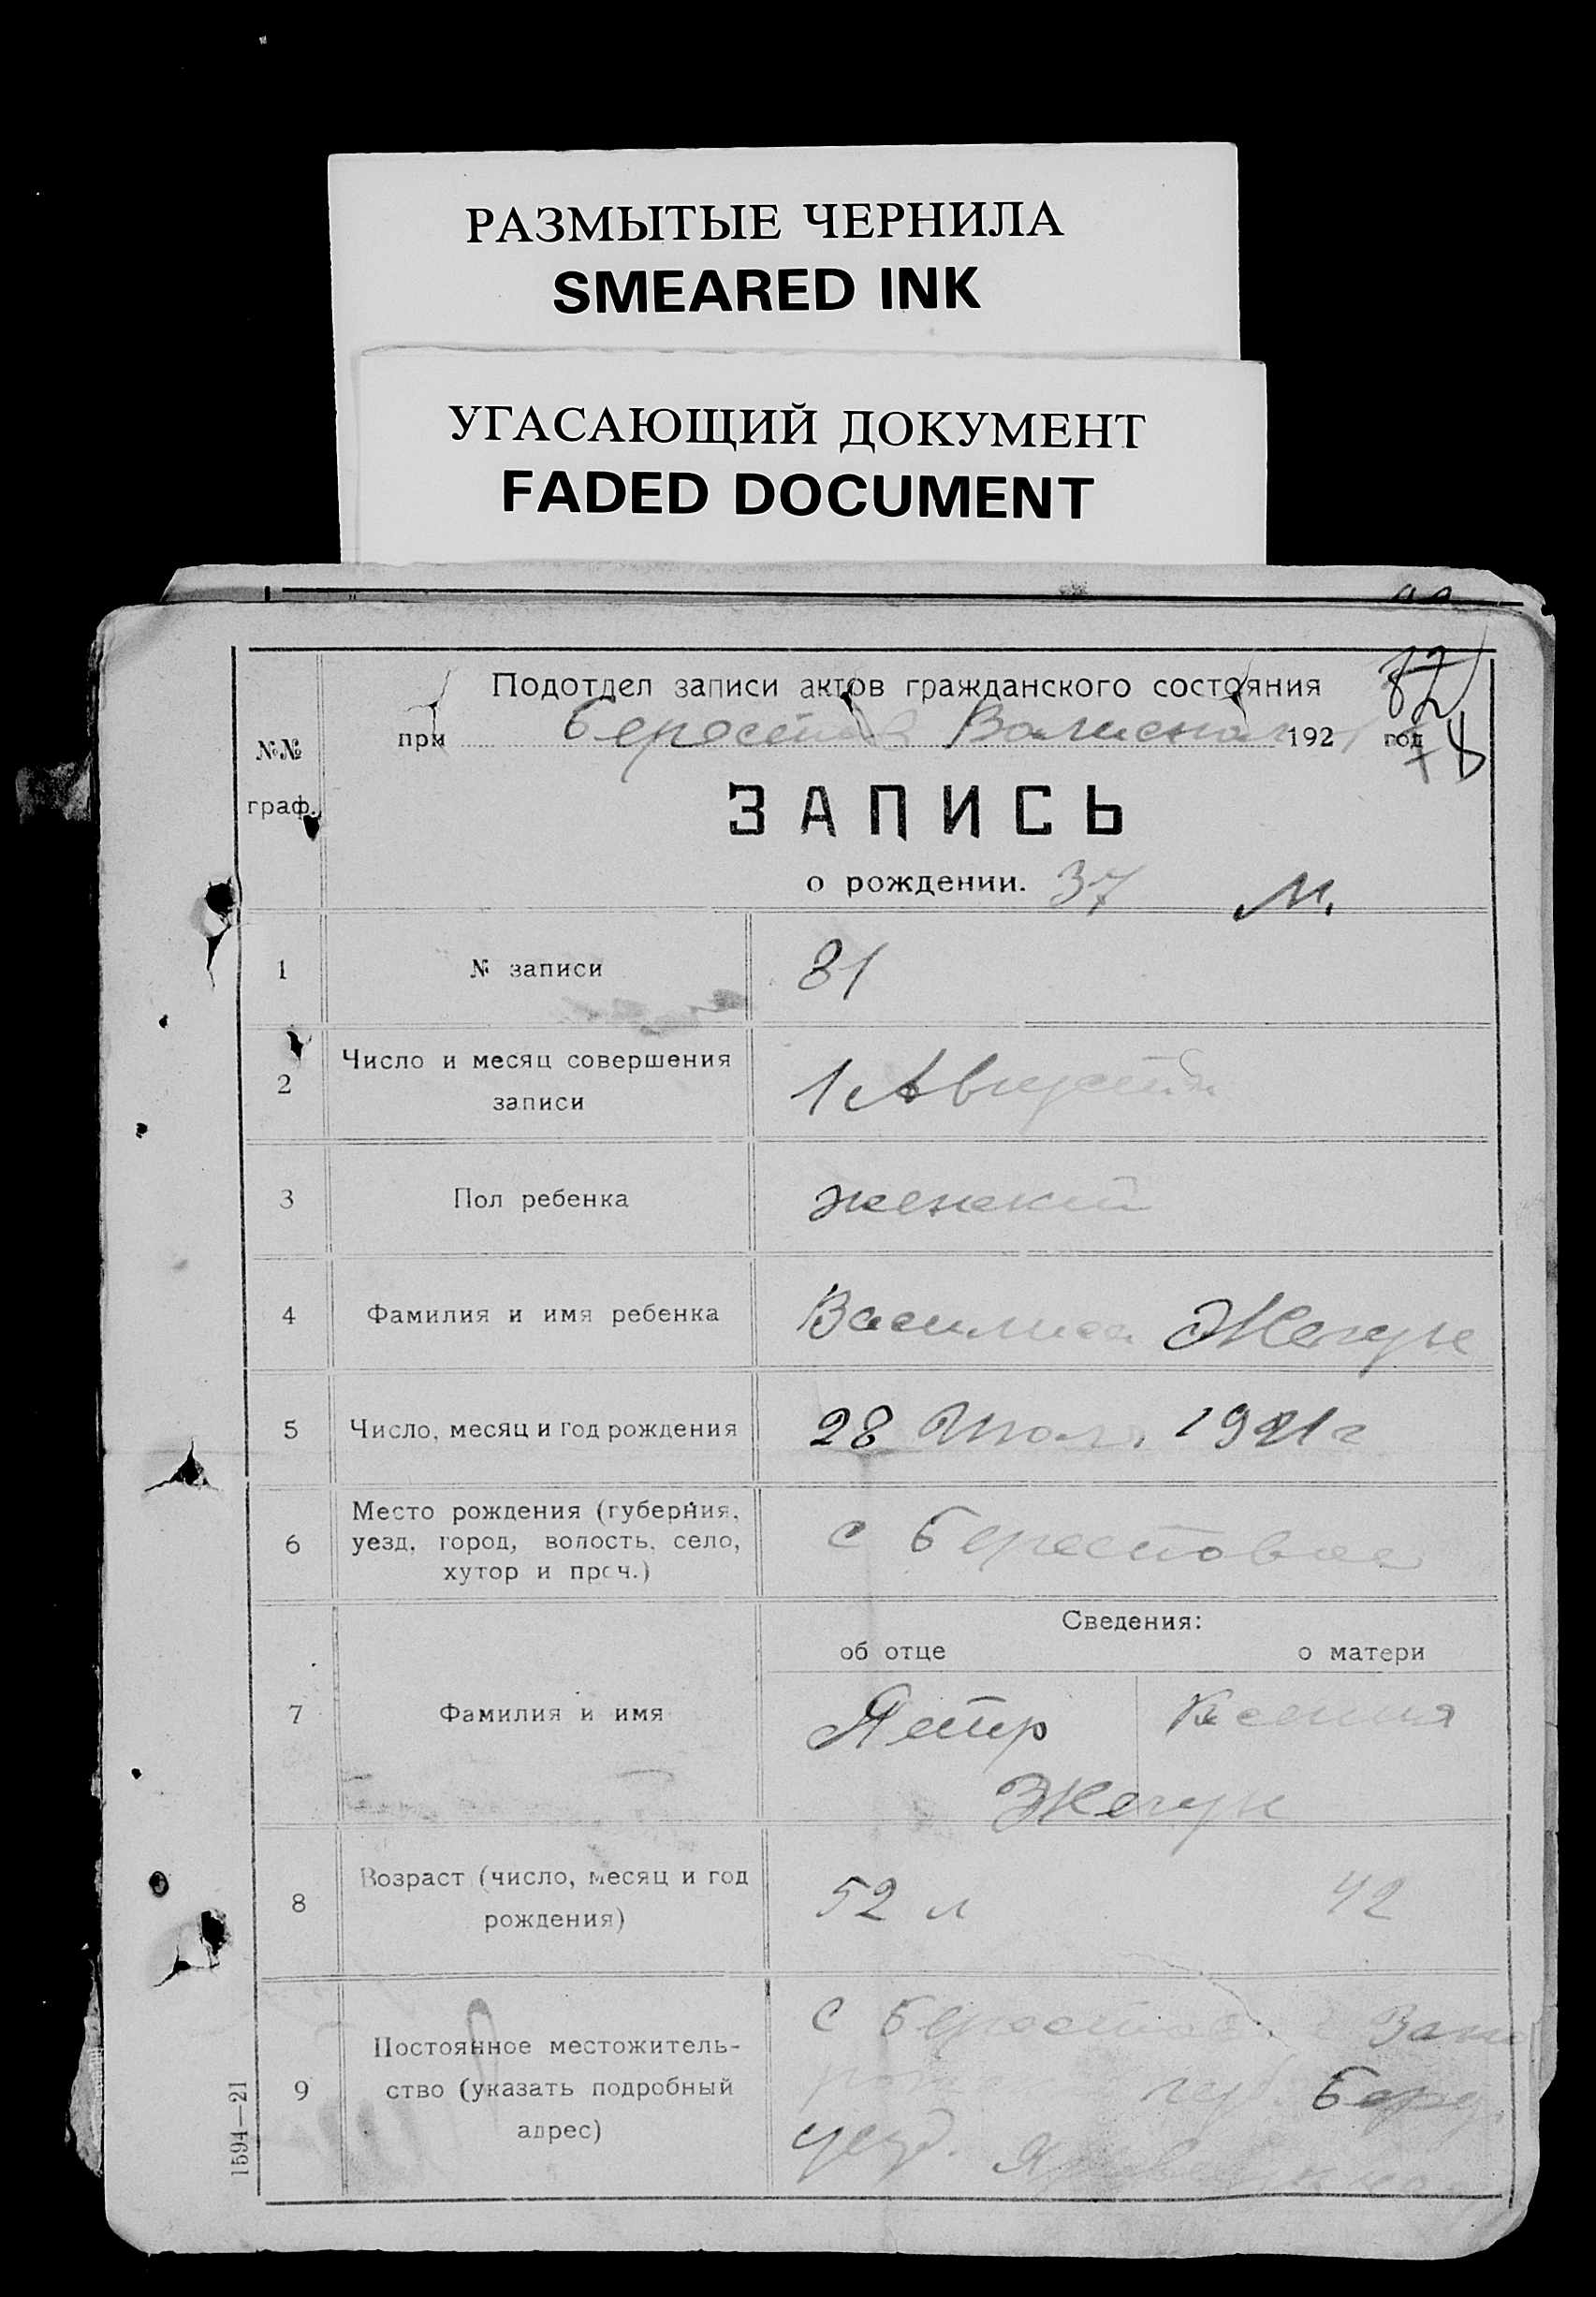 РАЗМЫТЫЕ ЧЕРНИЛА
SMEARED INK
УГАСАЮЩИЙ ДОКУМЕНТ
FADED DOCUMENT
82
Подотдел записи актов гражданского состояния
при 192 год
78
№№
граф.
ЗАПИСЬ
о рождении. 37 М.
1 № записи 81
2 Число и месяц совершения
записи
1 Августа
3 Пол ребенка женский
4 Фамилия и имя ребенка Василиса Жегун
5 Число, месяц и год рождения 28 Июля 1921 г
6 Место рождения (губерния,
уезд, город, волость, село,
хутор и проч.)
с Берестовое
Сведения:
об отце о матери
7 Фамилия и имя Петр Ксения
Жегун
8 Возраст (число, месяц и год
рождения)
52 л 42
9 Постоянное местожитель-
ство (указать подробный
адрес)
с
губ. Берд.
уезд.
1594—21